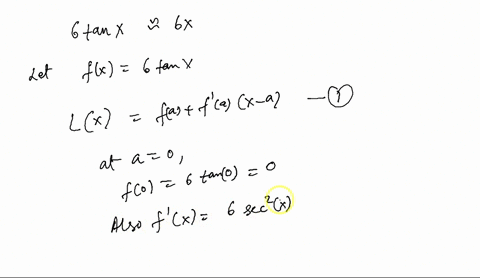 6 tan x ≈ 6x
Let f(x) = 6 tan x
L(x) = f(a) + f'(a) (x-a) — ①
at a = 0,
f(0) = 6 tan(0) = 0
Also f'(x) = 6 sec²(x)